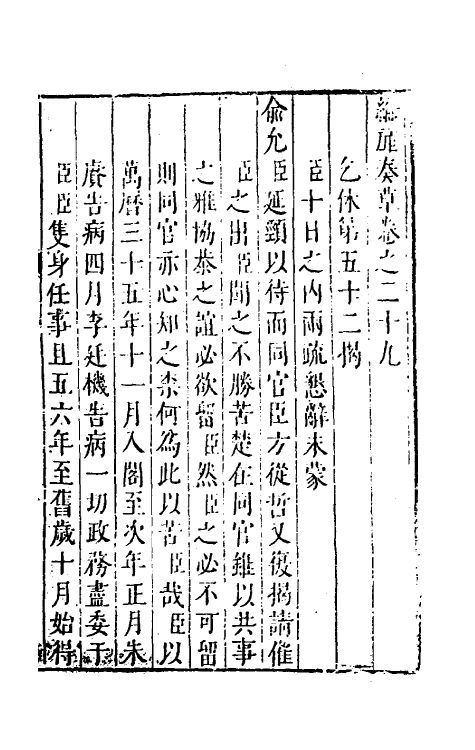 綸扉奏草卷之二十九
乞休第五十二揭
臣十日之內兩疏懇辭未蒙
俞允臣延頸以待而同官臣方從哲又復揭請催
臣之出臣聞之不勝苦楚在同官雖以共事
之雅協恭之誼必欲留臣然臣之必不可留
則同官亦心知之柰何為此以苦臣哉臣以
萬曆三十五年十一月入閣至次年正月朱
賡告病四月李廷機告病一切政務盡委于
臣臣隻身任事且五六年至舊歲十月始得